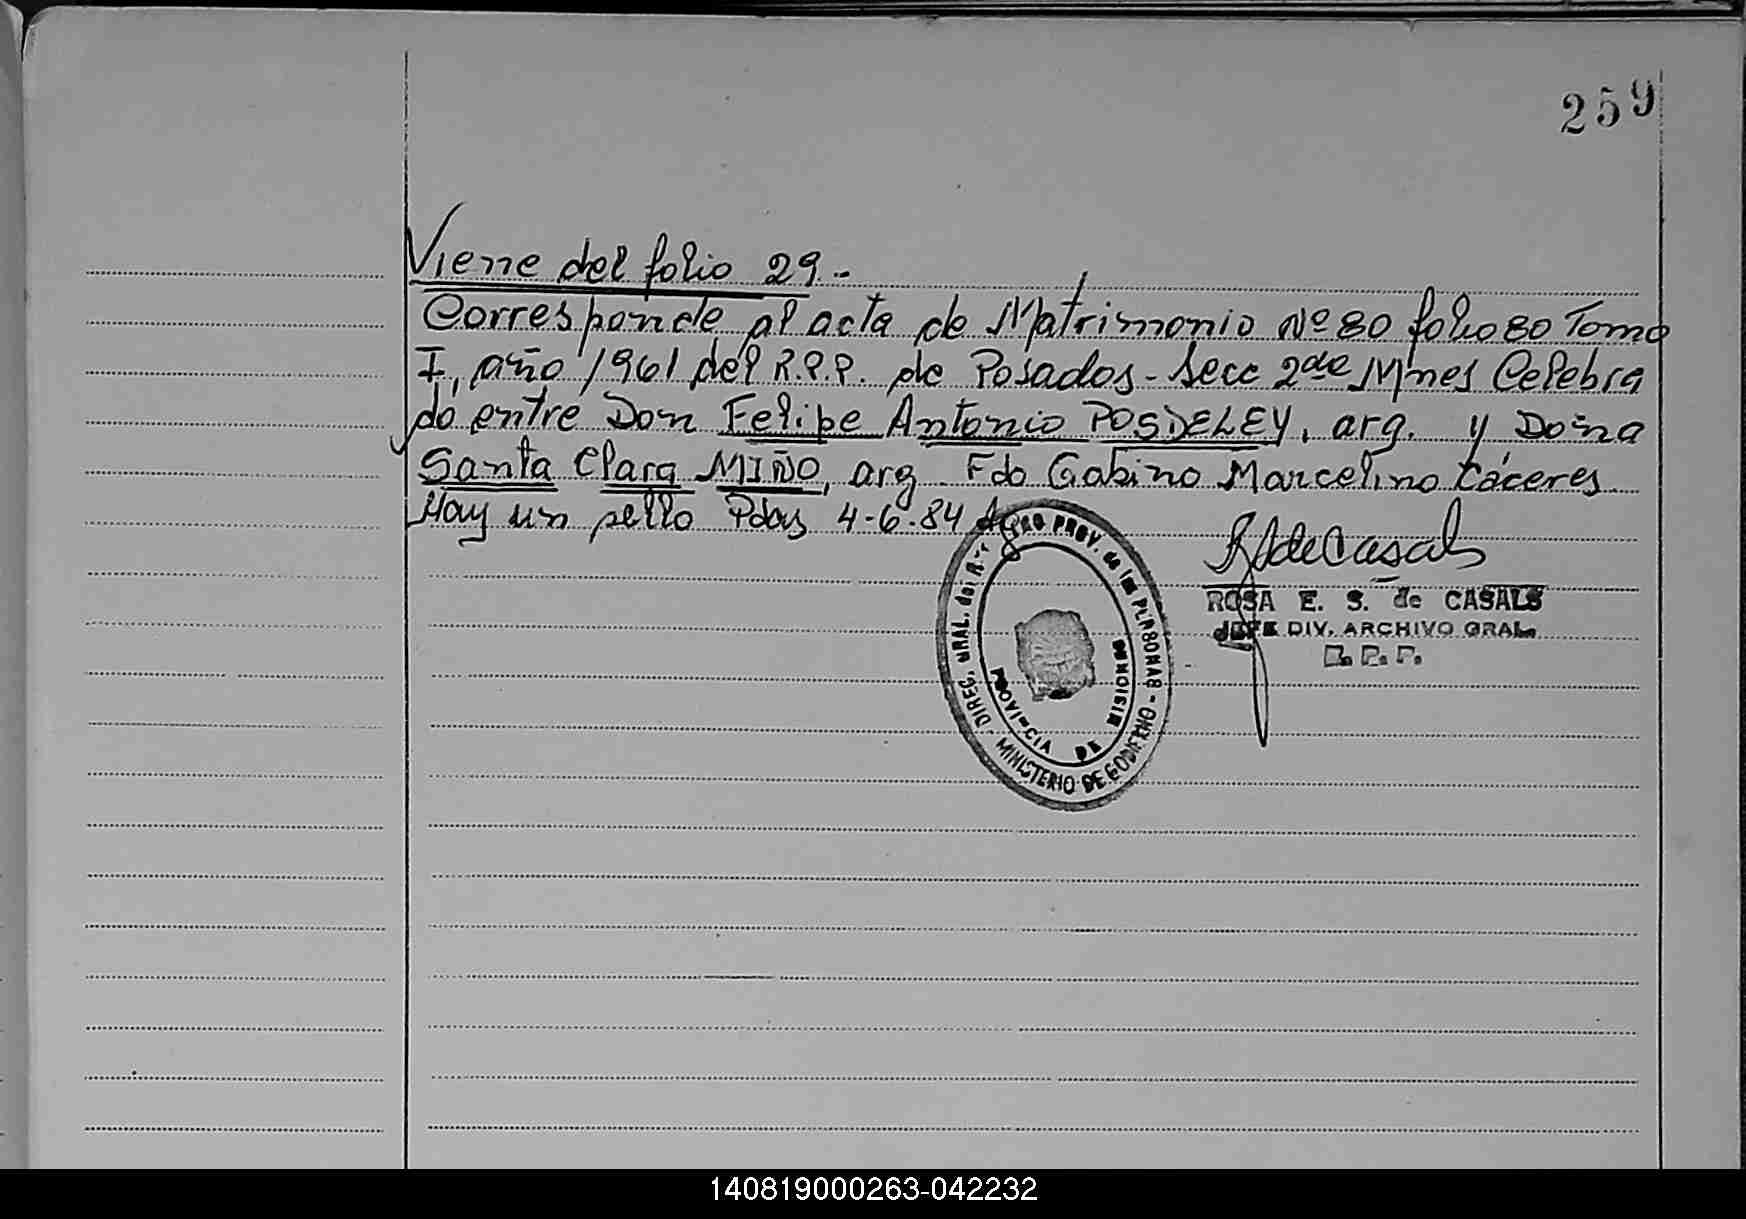 259
Viene del folio 29.-
Corresponde al acta de Matrimonio Nº 80 folio 80 Tomo
I, año 1961 del R.P.P. de Posadas - Secc 2da Mnes Celebra
do entre Don Felipe Antonio POSDELEY, arg. y Doña
Santa Clara MIÑO, arg. Fdo Gabino Marcelino Cáceres
Hay un sello Pdas 4-6-84
RSdeCasals
ROSA E. S. de CASALS
JEFE DIV. ARCHIVO GRAL.
R. P. P.
DIREC. GRAL. del PROV. de las PERSONAS - MINISTERIO DE GOBIERNO -
PROVINCIA DE MISIONES
140819000263-042232